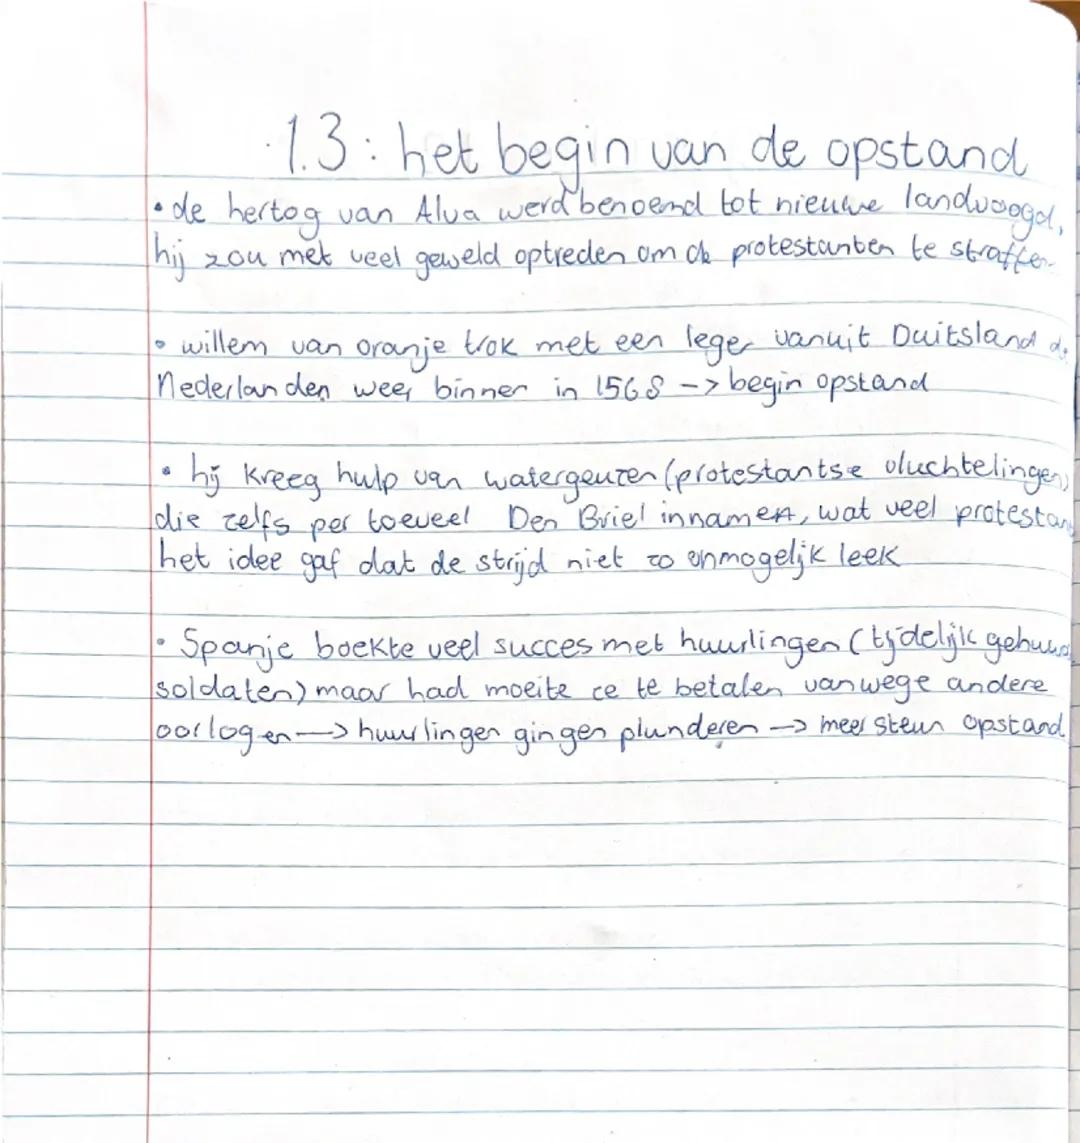 1.3: het begin van de opstand
• de hertog van Alva werd benoemd tot nieuwe landvoogd,
hij zou met veel geweld optreden om de protestanten te straffen
• willem van oranje trok met een leger vanuit Duitsland de
Nederlanden weer binnen in 1568 -> begin opstand
• hij kreeg hulp van watergeuzen (protestantse vluchtelingen)
die zelfs per toeveel Den Briel innamen, wat veel protestan
het idee gaf dat de strijd niet zo onmogelijk leek
• Spanje boekte veel succes met huurlingen (tijdelijk gehuur
soldaten) maar had moeite ze te betalen vanwege andere
oorlogen -> huurlingen gingen plunderen -> meer steun opstand